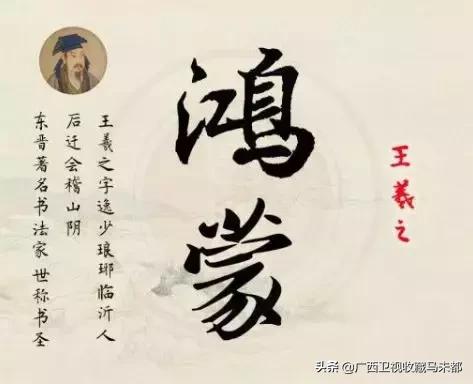 王羲之
鴻蒙
王羲之字逸少琅琊临沂人
后迁会稽山阴
东晋著名书法家 世称书圣
头条 @广西卫视收藏马未都